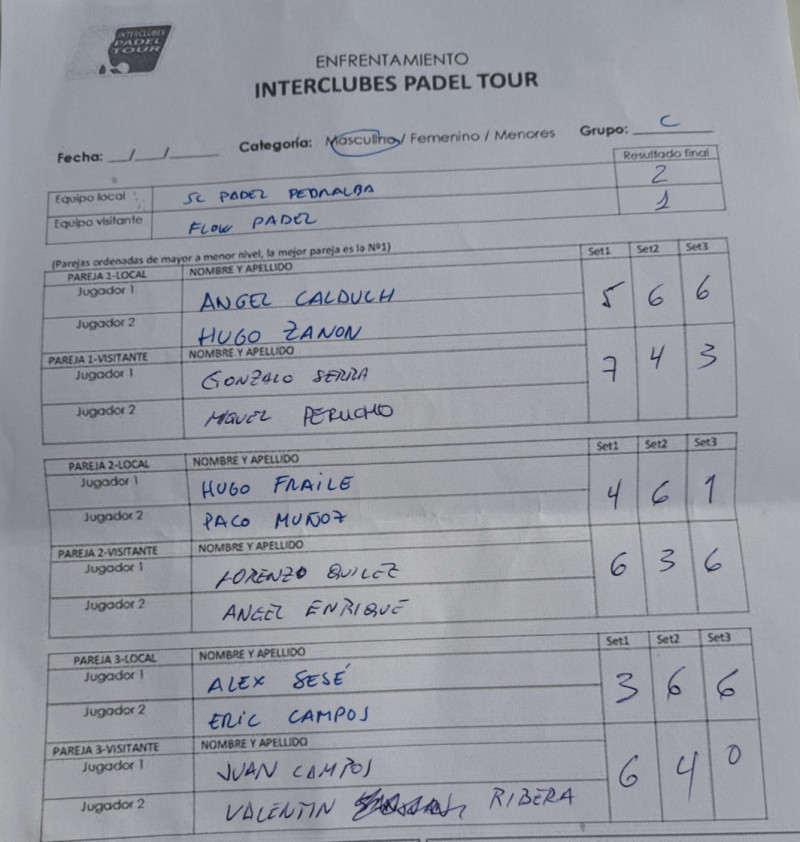 INTERCLUBES
PADEL
TOUR
ENFRENTAMIENTO
INTERCLUBES PADEL TOUR
Fecha: ___/___/______ Categoría: Masculino / Femenino / Menores Grupo: C
Resultado final
Equipo local SC PADEL PEDRALBA 2
Equipo visitante FLOW PADEL 1
(Parejas ordenadas de mayor a menor nivel, la mejor pareja es la Nº1)
PAREJA 1-LOCAL NOMBRE Y APELLIDO Set1 Set2 Set3
Jugador 1 ANGEL CALDUCH 5 6 6
Jugador 2 HUGO ZANON
PAREJA 1-VISITANTE NOMBRE Y APELLIDO
Jugador 1 GONZALO SERRA 7 4 3
Jugador 2 MIGUEL PERUCHO
PAREJA 2-LOCAL NOMBRE Y APELLIDO Set1 Set2 Set3
Jugador 1 HUGO FRAILE 4 6 1
Jugador 2 PACO MUÑOZ
PAREJA 2-VISITANTE NOMBRE Y APELLIDO
Jugador 1 LORENZO QUILEZ 6 3 6
Jugador 2 ANGEL ENRIQUE
PAREJA 3-LOCAL NOMBRE Y APELLIDO Set1 Set2 Set3
Jugador 1 ALEX SESÉ 3 6 6
Jugador 2 ERIC CAMPOS
PAREJA 3-VISITANTE NOMBRE Y APELLIDO
Jugador 1 JUAN CAMPOS 6 4 0
Jugador 2 VALENTIN RIBERA